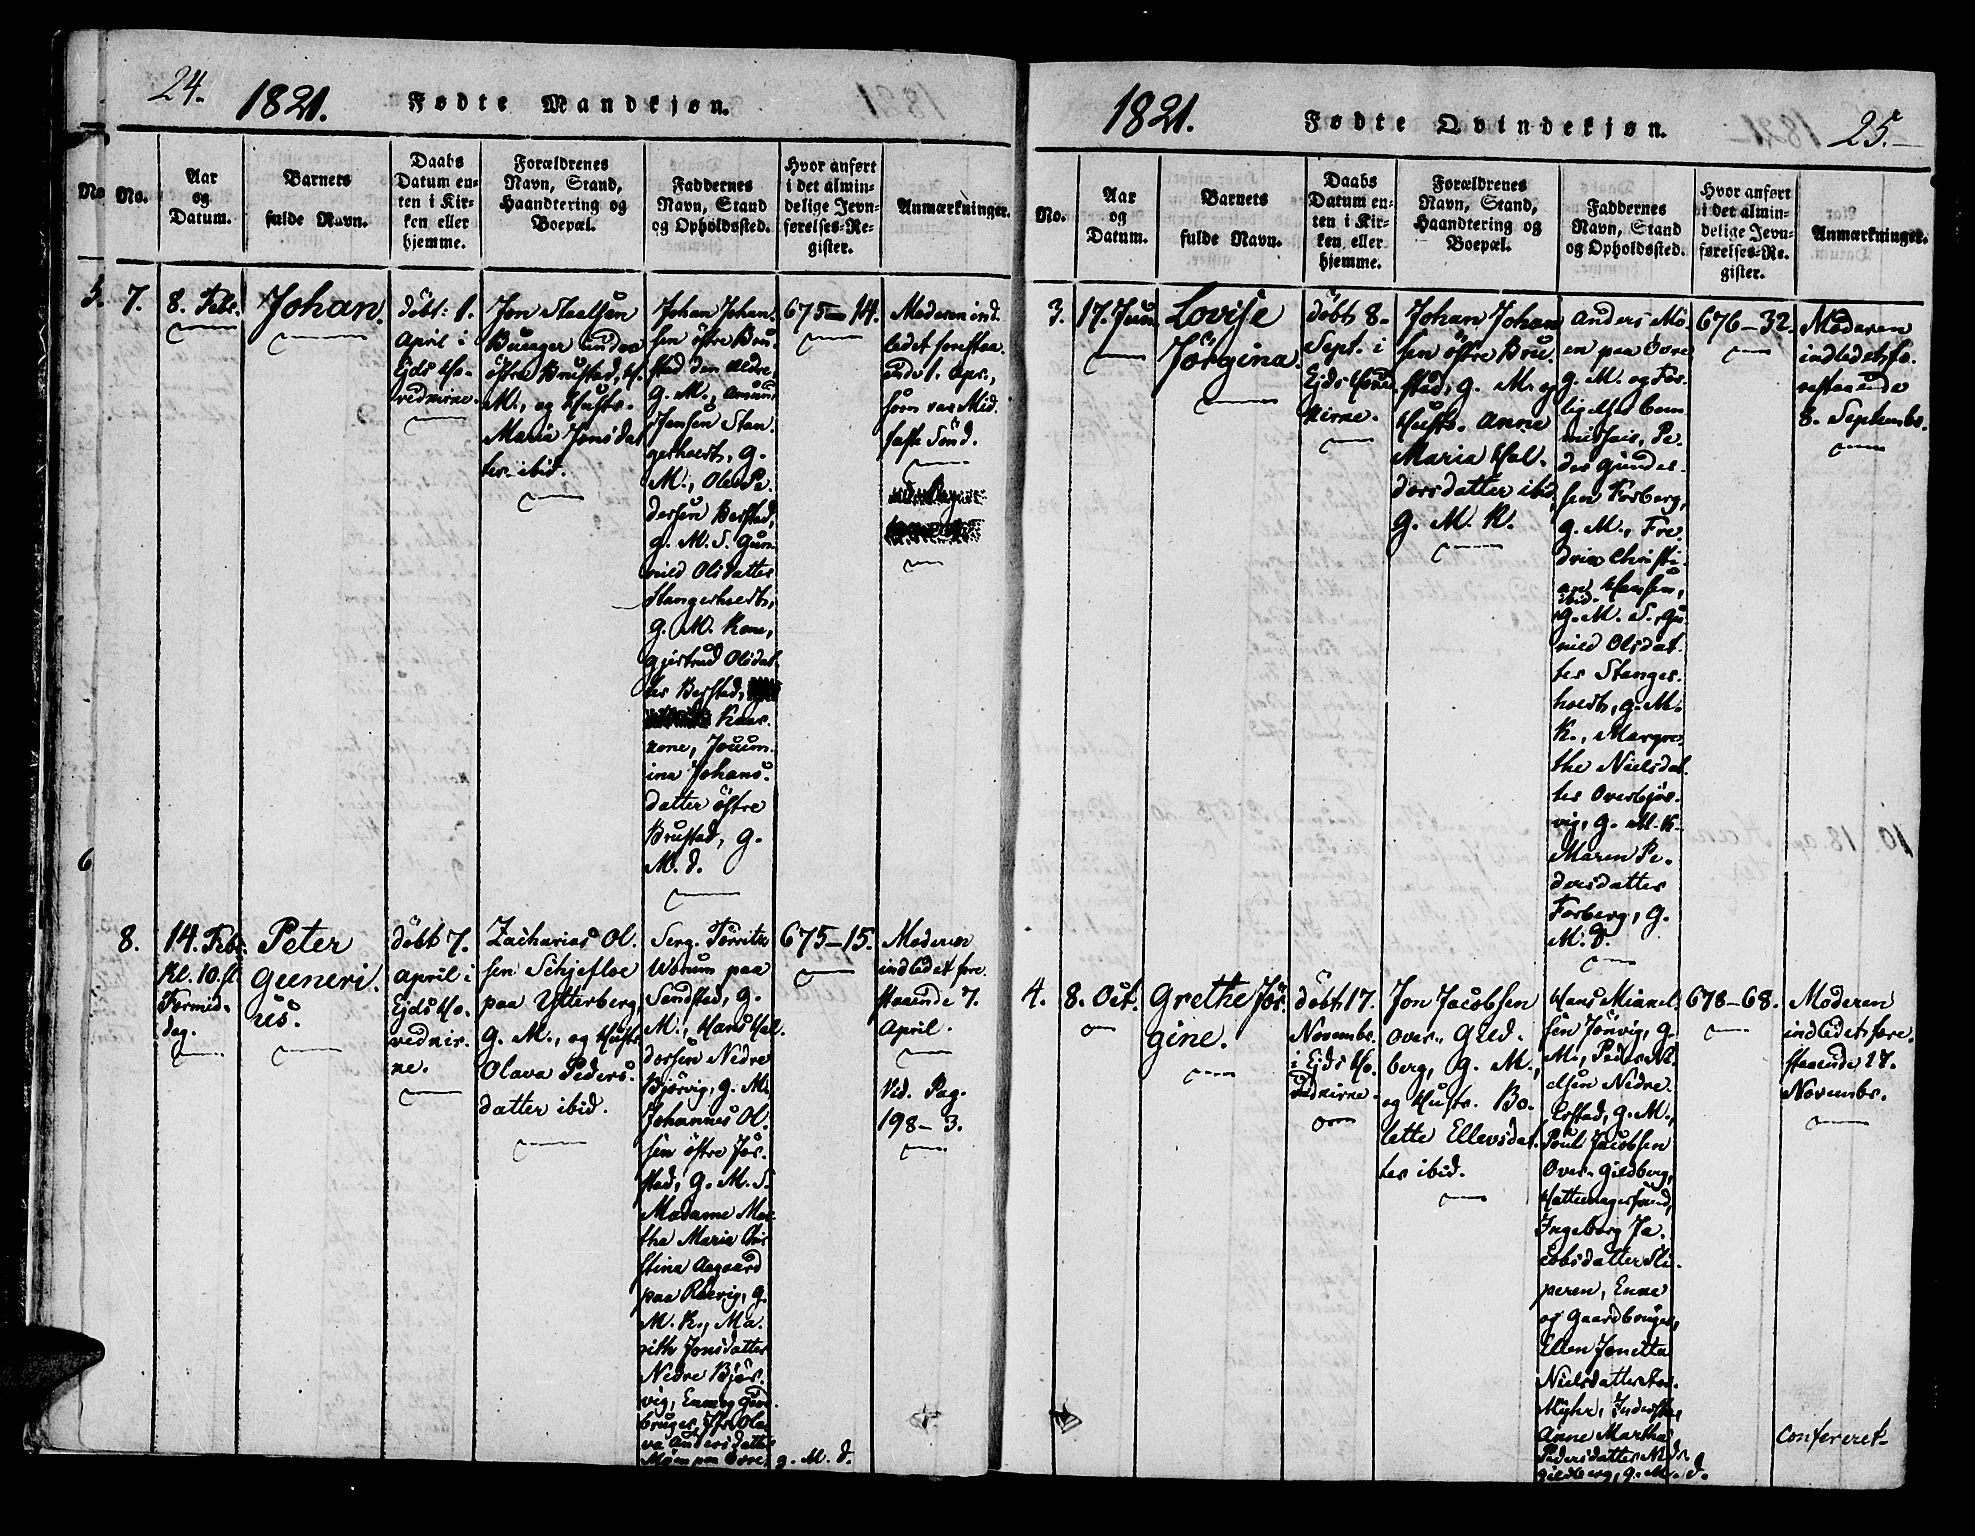 24.
1821.
Fødte Mandkjøn.
No.
No.
Aar
og
Datum.
Barnets
fulde Navn.
Daabs
Datum en-
ten i Kir-
ken eller
hjemme.
Forældrenes
Navn, Stand,
Haandtering og
Boepæl.
Faddernes
Navn, Stand
og Opholdssted.
Hvor anført
i det almin-
delige Jevn-
førelses-Re-
gister.
Anmærkninger.
5.
7.
8. Febr.
Johan.
döbt: 1.
April i
Ejds Ho-
vedkirke.
Jon Staalsen
Bruger under
östre Brustad, G.
M., og Hustr.
Maria Jonsdat
ter ibid.
Johan Johan.
sen östre Bru-
stad den Ældre,
G. M., Amund
Jensen Stan.
gerholdt, G.
M., Ole Pe.
dersen Berstad,
G. M. S. Gun-
nild Olsdatter
Stangerholdt,
G. M. Kone,
Gjertrud Olsdat.
ter Berstad,
Kaar-
kone,
ina Johans.
datter östre
Brustad, G.
M. d.
675-14.
Moderen ind.
ledet forestaa.
ende 1. Apr.,
som var Mid.
faste Sönd.
6
8.
14. Febr.
Kl. 10. sl.
Formid-
dag.
Peter
Guneri.
us.
döbt 7.
April i
Ejds Ho-
vedkir-
ke.
Zacharias Ol.
sen Schjefloe
paa Ytterberg,
G. M., og Hustr.
Olava Peders.
datter ibid.
Serg.
Worum paa
Sandstad, G.
M., Hans Hal.
dorsen Nedre
Bjørvig, G. M.
Johannes Ol.
sen östre Jör.
stad, G. M. S.
Madame Mar
tha Maria Chri
stina Aagaard
paa Rörvig, G.
M. K., Ma.
rith Jonsdatter
Nedre Björ.
vig, Enke og Gaard
bruger, Ifr. Ola
va Andersdatter
Möen paa Övre, g. M. d.
675-15.
Moderen
indledet fore.
staaende 7.
April.
Vid. Pag.
198-3.
1821.
Fødte Qvindekjøn.
25.
No.
Aar
og
Datum.
Barnets
fulde Navn.
Daabs
Datum en-
ten i Kir-
ken eller
hjemme.
Forældrenes
Navn, Stand,
Haandtering og
Boepæl.
Faddernes
Navn, Stand
og Opholdssted.
Hvor anført
i det almin-
delige Jevn-
førelses-Re-
gister.
Anmærkninger.
3.
17. Jun
Lovise
Jörgina.
döbt 8.
Sept. i
Ejds Hoved
kirke.
Johan Johan
sen östre Bru.
stad, G. M. og
Hustr. Anne
Maria Hal.
dorsdatter ibid,
G. M. K.
Anders Mö
en paa Övre
G. M. og For.
ligelses Com
missair, Pe-
der Gunder-
sen Forberg,
G. M., Fre
drik Christi-
an Hansen,
ibid.
G. M. S. Gu
nild Olsdat.
ter Stanger
holdt, G. M.
K., Margre
the Nielsdat.
ter Overbjör.
vig, G. M. K.
Maren Pe.
dersdatter
Forberg, G.
M. D.
676-32.
Moderen
indledet fo.
restaaende
8. Septembr.
4.
8. Oct.
Grethe Jör.
gine.
döbt 17.
Novembr.
i Ejds Ho.
vedkirke.
Jon Jacobsen
Over. Gild.
berg, G. M.,
og Hustr. Bo.
lette Ellevsdat.
ter ibid.
Hans Mikkel.
sen Jönvig, G.
M., Peder Ni.
elsen Nedre
Erstad, G. M.,
Poul Jacobsen
Over. Gildberg,
Hattemagersvend,
Ingeborg Ja.
cobsdatter Sli.
peren, Enke
og Gaardbruger,
Ellen Jonetta
Nielsdatter
Myhr, Inderöen,
Anne Martha
Pedersdatter Nedr.
Gildberg, G. M. d.
678-68.
Moderen
indledet fore.
staaende 17.
Novembr.
Confereret